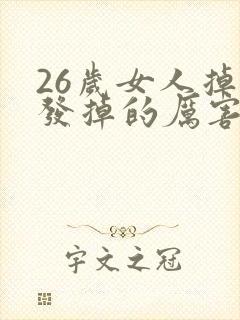 26歲女人掉
發掉的厲害
宇文之冠